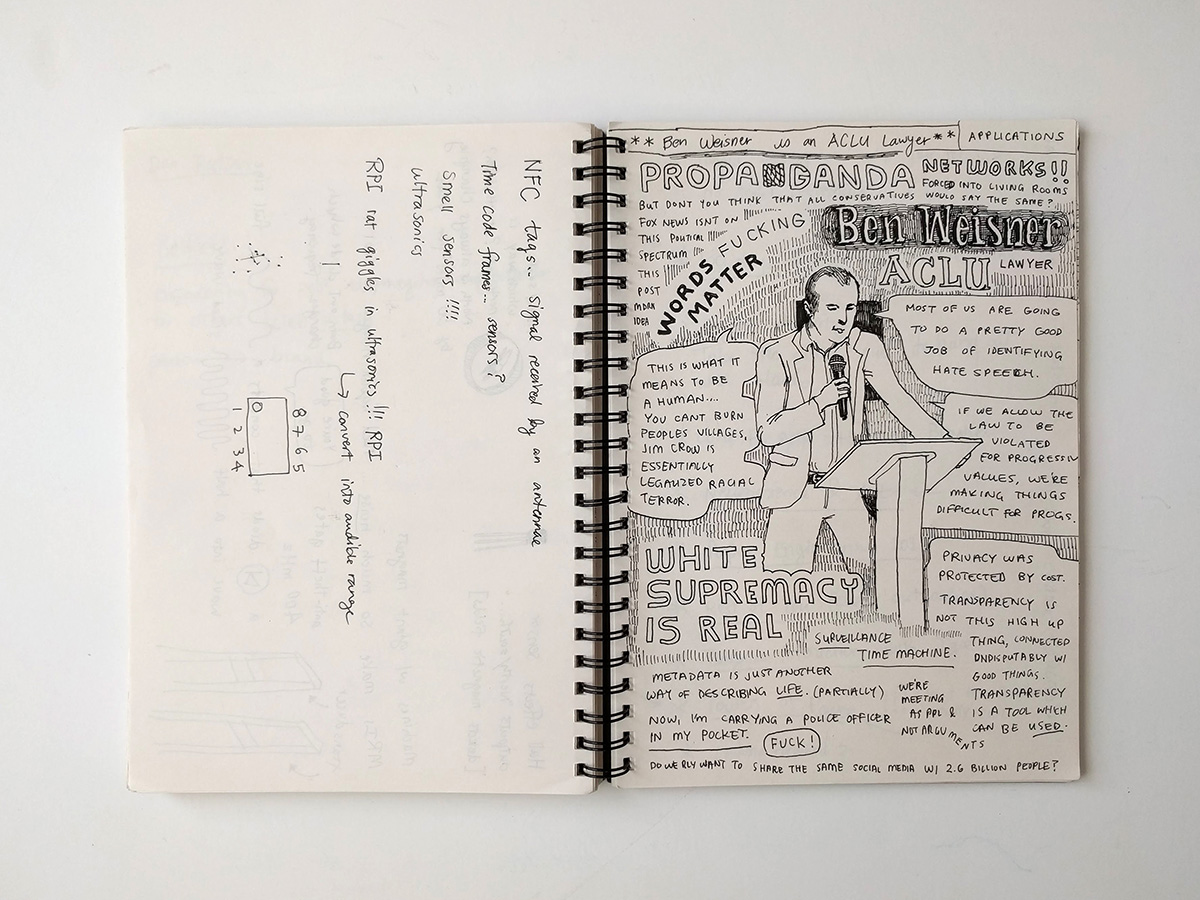 NFC tags... signal received by an antennae
Time code frames... sensors?
Smell sensors !!!!
ultrasonics
RPI rat giggles in ultrasonics !!! RPI
↳ convert into audible range
8 7 6 5
1 2 3 4
** Ben Weisner is an ACLU Lawyer**
APPLICATIONS
PROPAGANDA
NETWORKS!!
FORCED INTO LIVING ROOMS
BUT DONT YOU THINK THAT ALL CONSERVATIVES WOULD SAY THE SAME?
FOX NEWS ISNT ON
THIS POLITICAL
SPECTRUM
THIS
POST
MDRN
IDEA
WORDS
FUCKING
MATTER
Ben Weisner
ACLU LAWYER
MOST OF US ARE GOING
TO DO A PRETTY GOOD
JOB OF IDENTIFYING
HATE SPEECH.
THIS IS WHAT IT
MEANS TO BE
A HUMAN....
YOU CANT BURN
PEOPLES VILLAGES,
JIM CROW IS
ESSENTIALLY
LEGALIZED RACIAL
TERROR.
IF WE ALLOW THE
LAW TO BE
VIOLATED
FOR PROGRESSIV
VALUES, WE'RE
MAKING THINGS
DIFFICULT FOR PROGS.
WHITE
SUPREMACY
IS REAL
PRIVACY WAS
PROTECTED BY COST.
TRANSPARENCY IS
NOT THIS HIGH UP
THING, CONNECTED
UNDISPUTABLY W/
GOOD THINGS.
TRANSPARENCY
IS A TOOL WHICH
CAN BE USED.
SURVEILLANCE
TIME MACHINE.
METADATA IS JUST ANOTHER
WAY OF DESCRIBING LIFE. (PARTIALLY)
NOW, I'M CARRYING A POLICE OFFICER
IN MY POCKET.
FUCK!
WE'RE
MEETING
AS PPL &
NOT ARGUMENTS
DO WE RLY WANT TO SHARE THE SAME SOCIAL MEDIA W/ 2.6 BILLION PEOPLE?